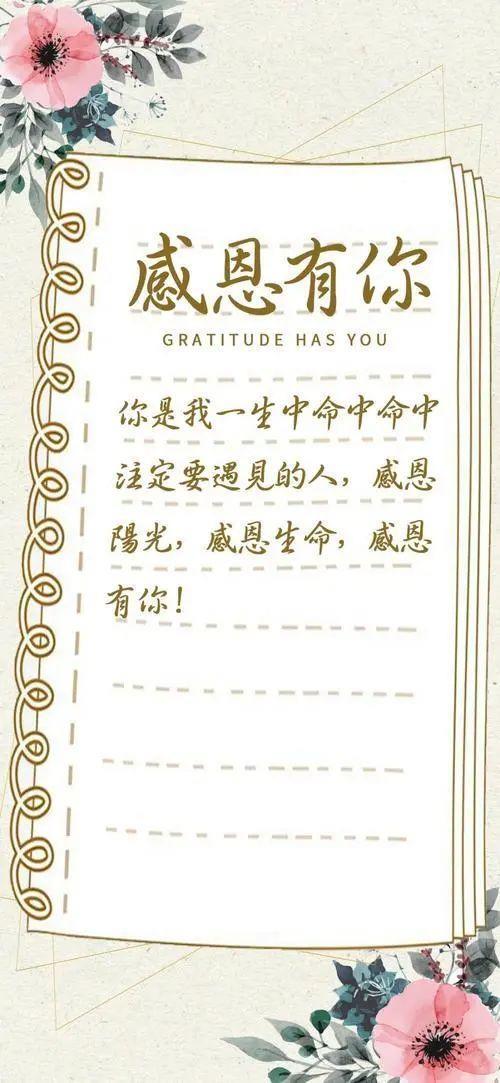 感恩有你
GRATITUDE HAS YOU
你是我一生中命中命中
注定要遇見的人，感恩
陽光，感恩生命，感恩
有你！